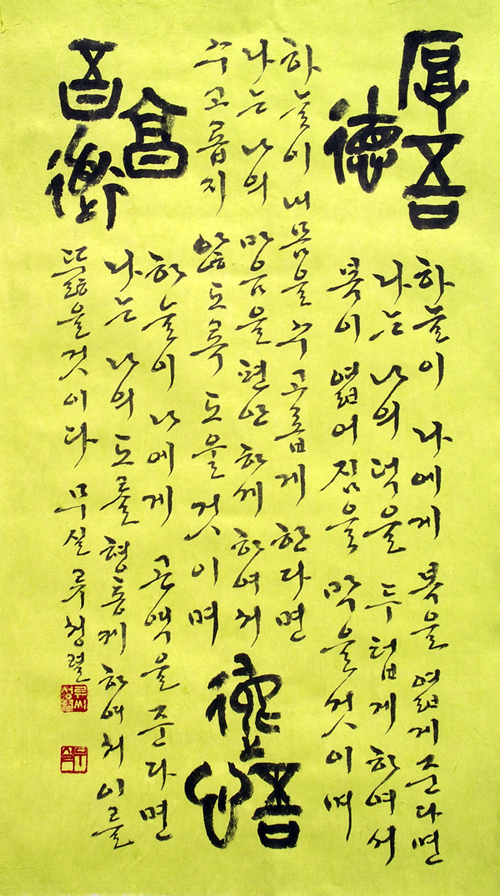 厚吾
德
하늘이 나에게 복을 엷게 준다면
나는 나의 덕을 두텁게 하여서
복이 엷어짐을 막을것이며
하늘이 내 몸을 수고롭게 한다면
나는 나의 마음을 편안하게 하여서
수고롭지 않도록 도울것이며
吾
心
亨
吾
하늘이 나에게 곤액을 준다면
나는 나의 도를 형통케 하여서 이를
뚫을것이다 무실 류청렬